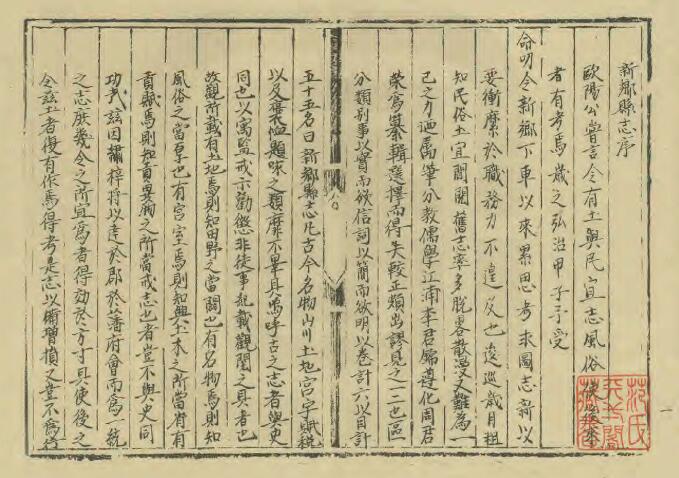 新鄉縣志序
歐陽公嘗言令有土與民宜志風俗
者有考焉歲之弘治甲子予受
命明令新鄉下車以來累思考求圖志新以
要衝縻於職務力不遑及也逡巡歲月粗
知民俗土宜閱舊志率多脫畧散漫又難為一
己之力迺屬筆分教儒學江浦李君遵化周君
榮為纂輯選擇而得失較正類出謬見之一二也區
分類别事以實而欲信詞以簡而欲明以卷計六以目計
五十五名曰新鄉縣志凡古今名物山川土地宮室賦稅
以及題咏之類靡不畢具嗚呼古之志者與史
同也以寓監戒示勸懲非徒事紀載觀聞之具者也
故觀所載有土地焉則知田野之當闢也有名物焉則知
風俗之當厚也有宮室焉則知興土木之所當有有
貢賦焉則知之所當戒志也者豈不與史同
功哉茲因繡梓將以達於郡於藩府會而為一統
之志庶幾令之所宜為者得效於方寸具使後之
令茲土者復有作焉得考是志以增損又豈不為
范氏天一閣藏書